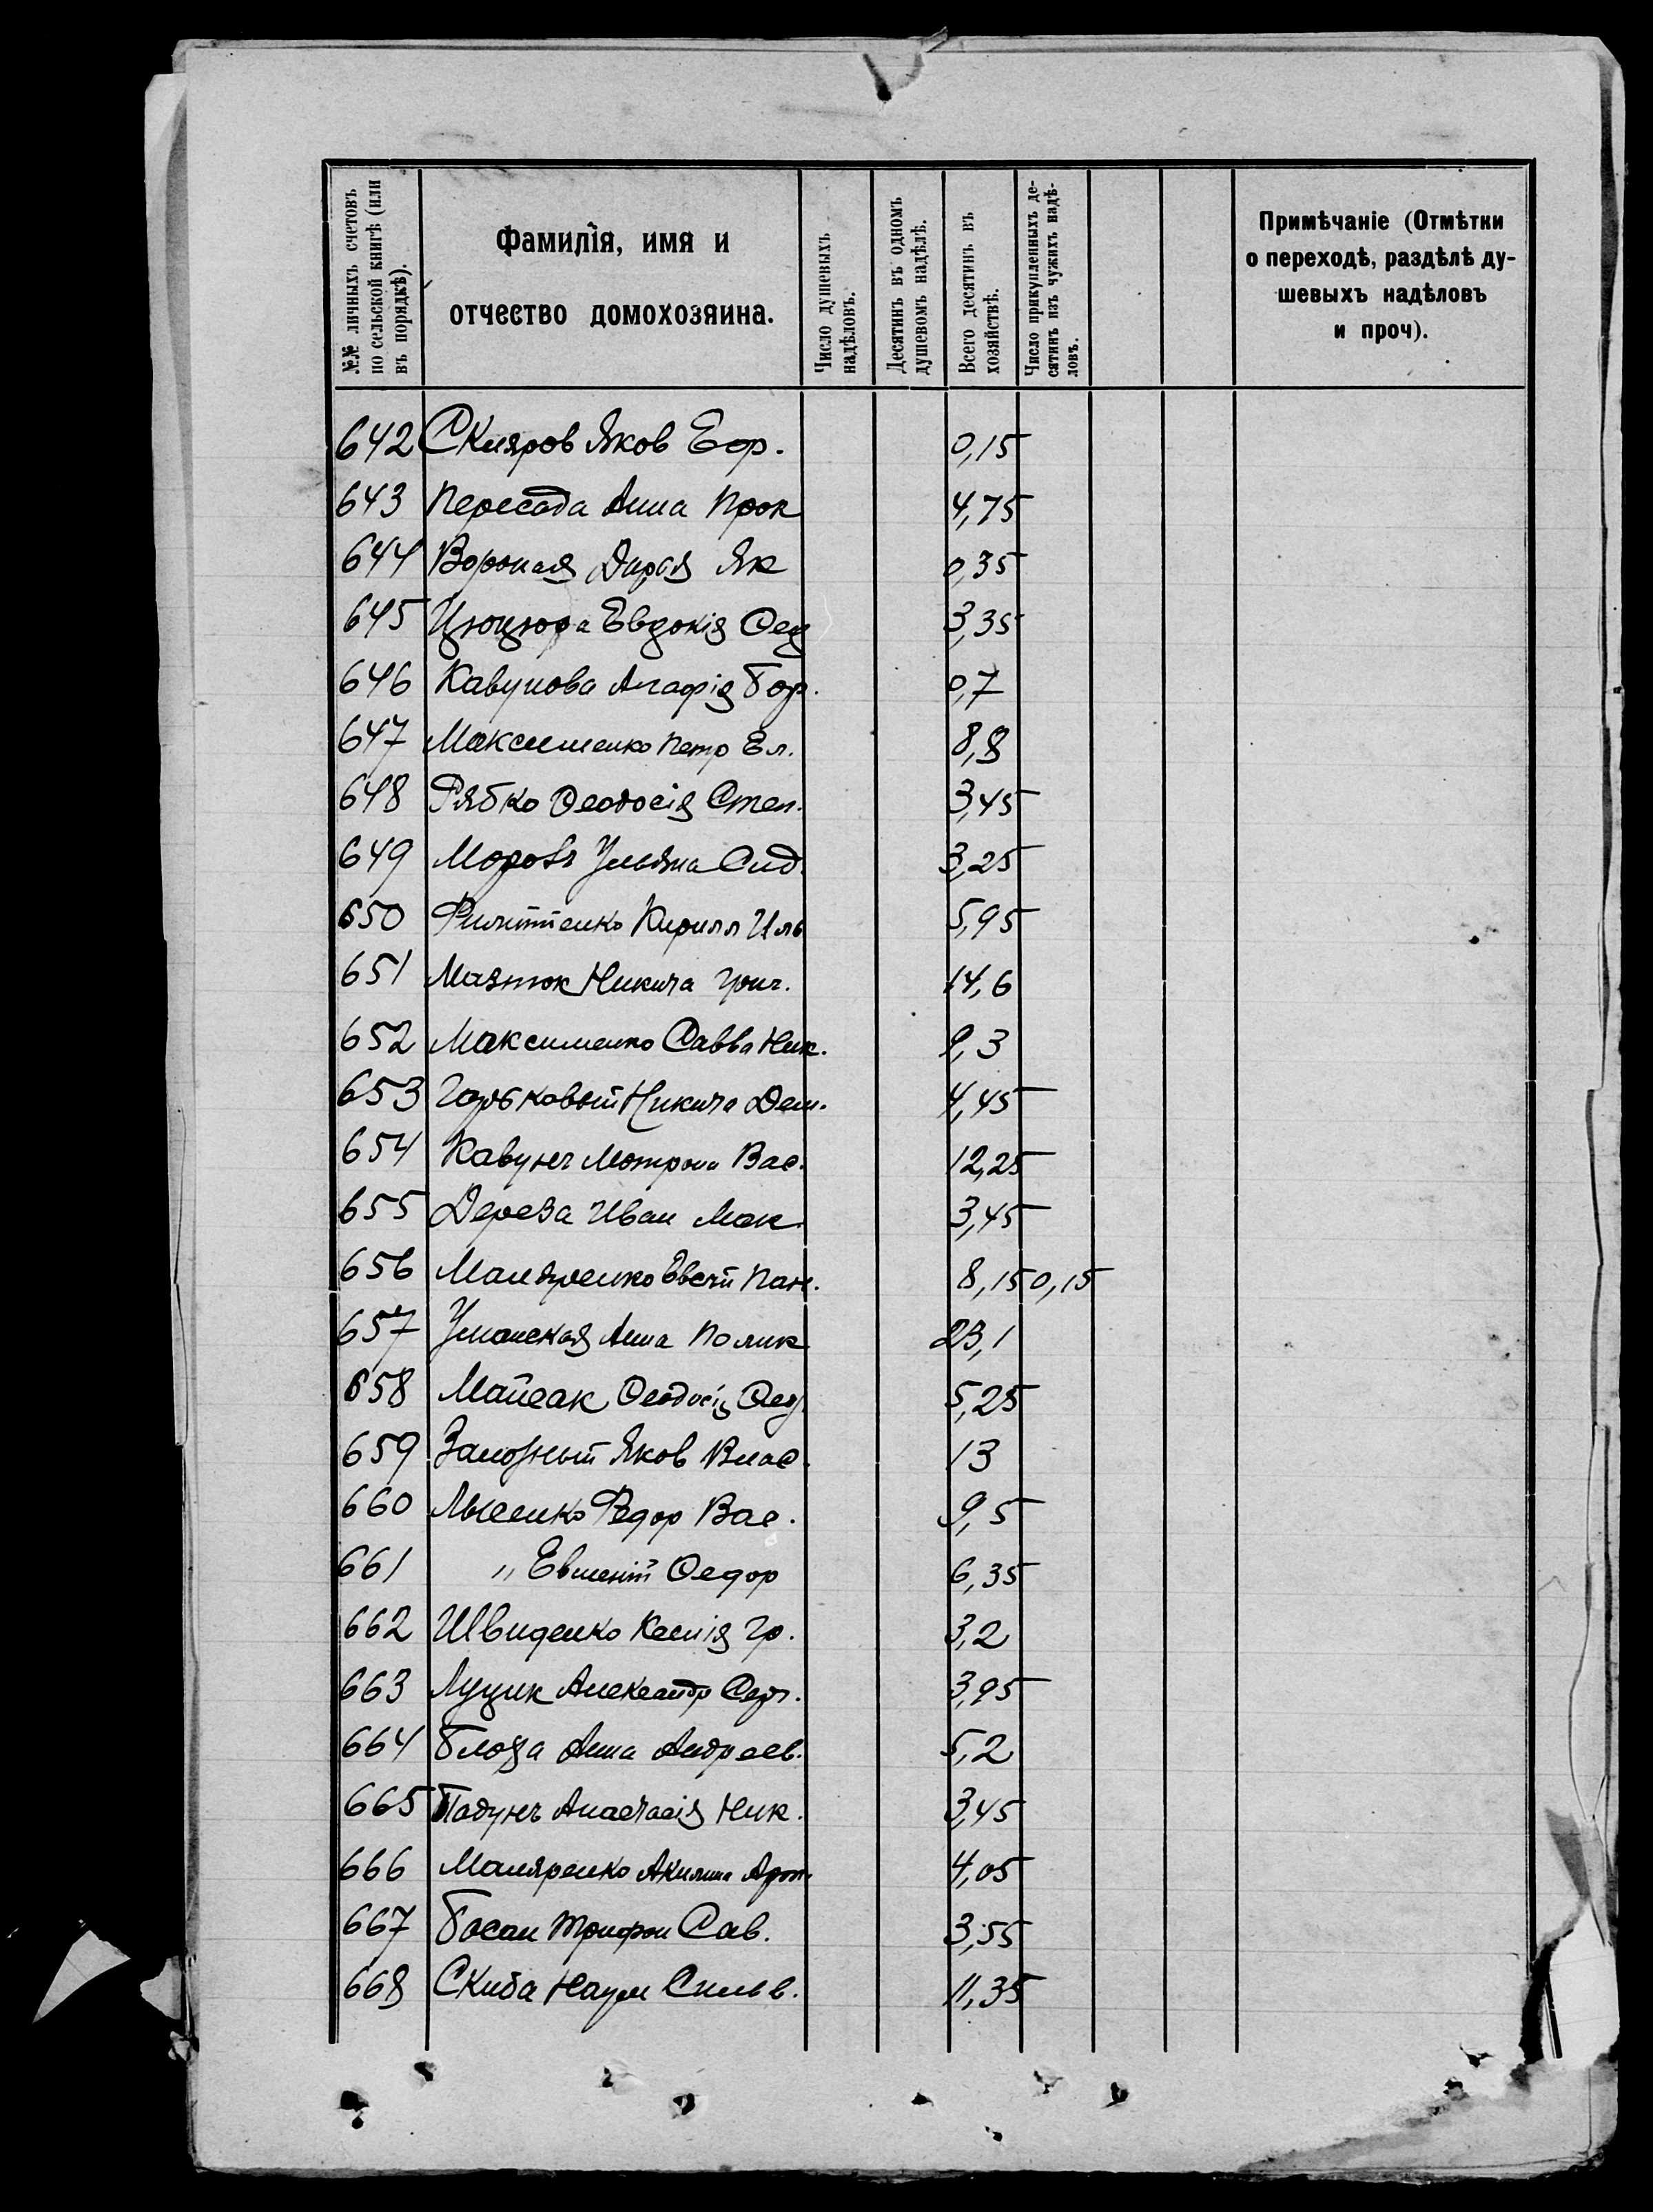 №№ личныхъ счетовъ
по сельской книгѣ (или
въ порядкѣ).
Фамилія, имя и
отчество домохозяина.
Число душевыхъ
надѣловъ.
Десятинъ въ одномъ
душевомъ надѣлѣ.
Всего десятинъ въ
хозяйствѣ.
Число прикупленныхъ де-
сятинъ изъ чужихъ надѣ-
ловъ.
Примѣчаніе (Отмѣтки
о переходѣ, раздѣлѣ ду-
шевыхъ надѣловъ
и проч).
642 Скляров Яков Еф. 0,15
643 Пересада Анна Прок 4,75
644 Вороная Дарья Як 0,35
645 Цюцюра Евдокія Фед 3,35
646 Кавунова Агафія 0,7
647 Максименко Петр Ел. 8,8
648 Рябко Феодосія Степ. 3,45
649 Морозъ Ульяна Сид. 3,25
650 Филиппенко Кирилл Иль 5,95
651 Мазток Никита Григ. 14,6
652 Максименко Савва Ник. 9,3
653 Горьковый Никита Дем. 4,45
654 Кавунъ Мотрона Вас. 12,25
655 Дереза Иван Мак. 3,45
656 Маляренко Пан. 8,15 0,15
657 Уманская Анна Полик 23,1
658 Майсак Феодосія Фед. 5,25
659 Яков Влас. 13
660 Лысенко Федор Вас. 9,5
661 „ Евгений Федор 6,35
662 Швиденко Ксенія Гр. 3,2
663 Луцик Александр Серг. 3,95
664 Блоза Анна Андреев. 5,2
665 Падунъ Анастасія Ник. 3,45
666 Маляренко Акилина 4,05
667 Босан Трифон Сав. 3,55
668 Скиба Наум Сильв. 11,35